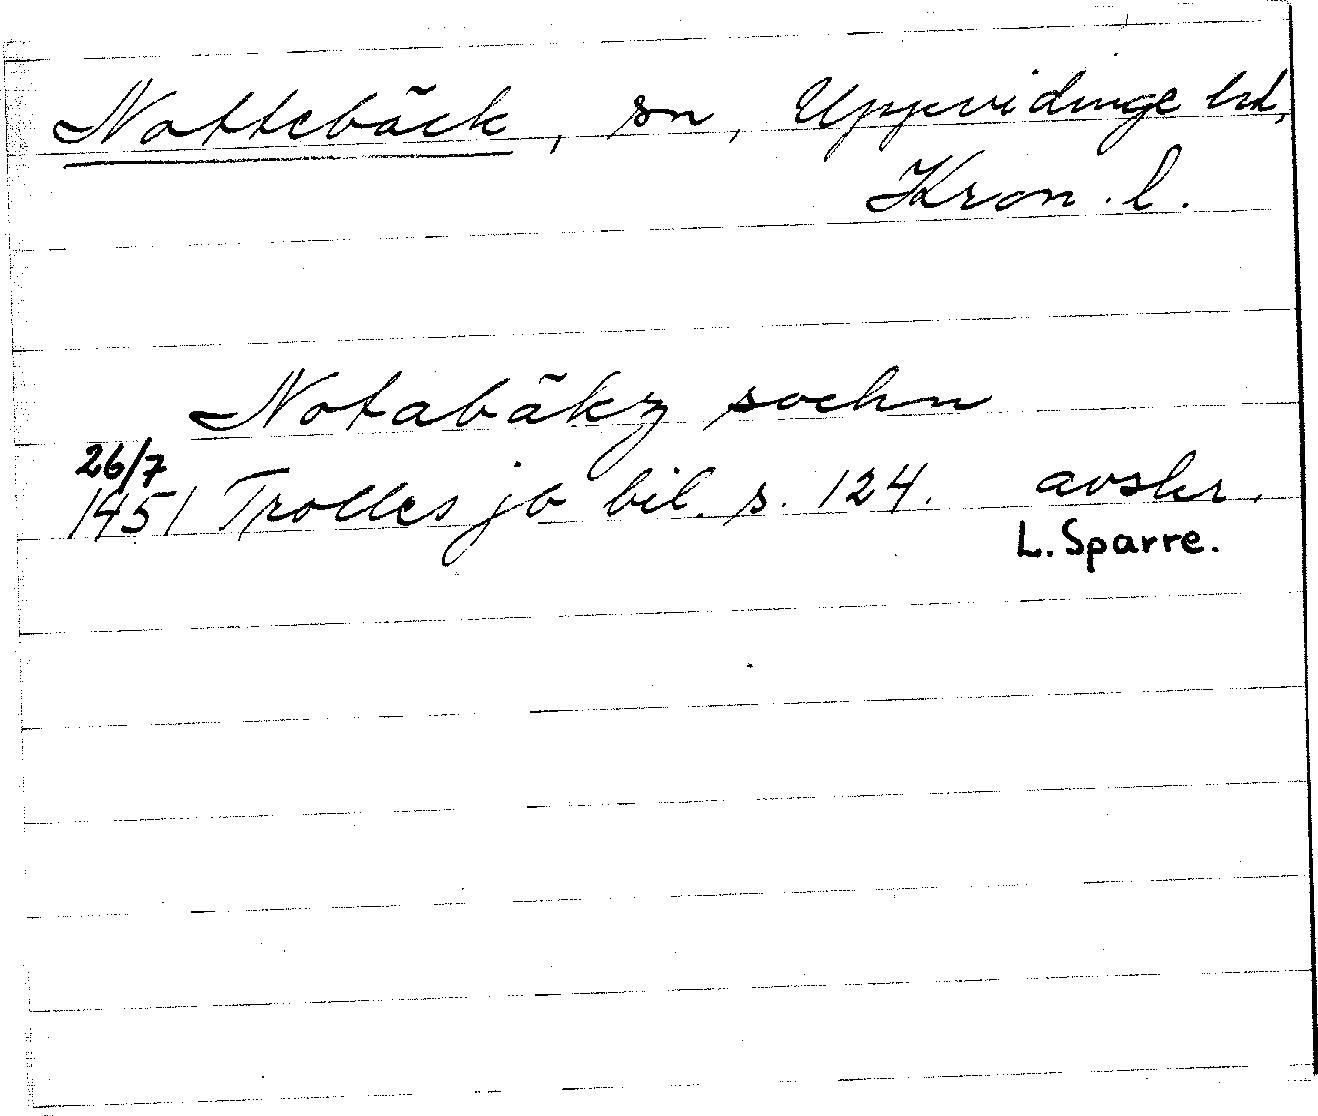 Nottebäck, sn, Uppvidinge hd,
Kron. l.
Notabäkz sochn
26/7
1451 Trolles jb bil. s. 124. avskr.
L. Sparre.